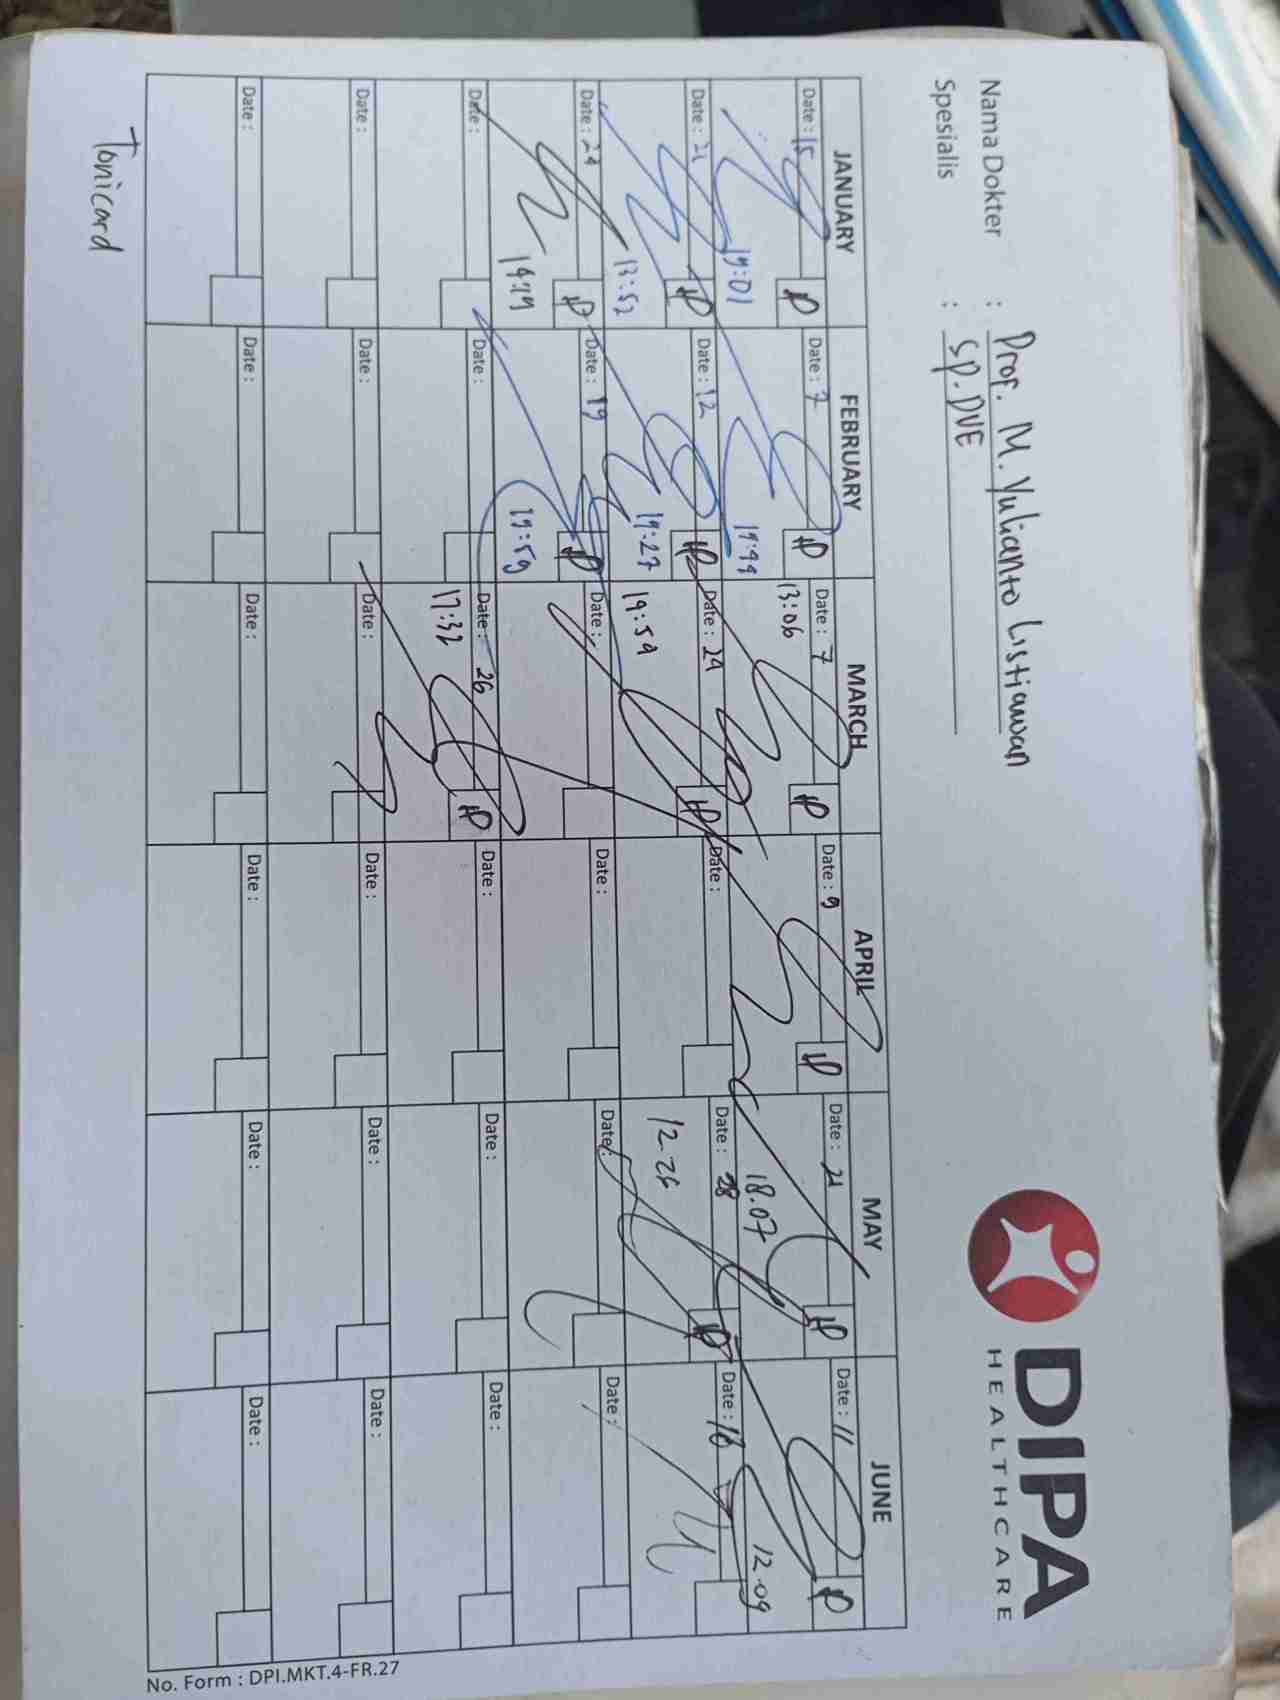 Nama Dokter : Prof. M. Yulianto Listiawan
Spesialis : Sp.DVE
DIPA
HEALTHCARE
JANUARY FEBRUARY MARCH APRIL MAY JUNE
Date : 15 Date : 7 Date : 7 Date : 9 Date : 21 Date : 11
13:06 18.07 12.09
Date : 21 Date : 12 Date : 24 Date : Date : 28 Date : 18
13:52 19:27 19:54 12.24
Date : 24 Date : 19 Date : Date : Date : Date :
14:19 19:59
Date : Date : Date : 26 Date : Date : Date :
17:32
Date : Date : Date : Date : Date : Date :
Date : Date : Date : Date : Date : Date :
Tonicard
No. Form : DPI.MKT.4-FR.27